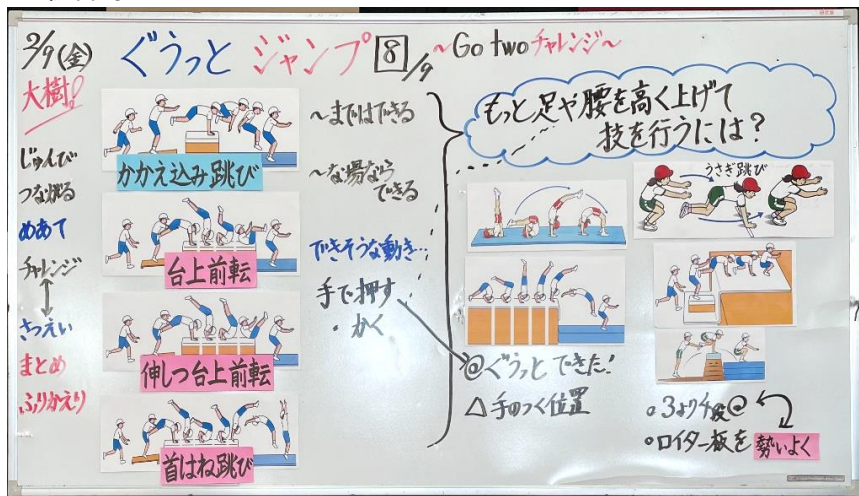 2/9(金)
ぐうっと ジャンプ 8/9 ～Go twoチャレンジ～
大樹!
じゅんび
つなげる
めあて
チャレンジ
さつえい
まとめ
ふりかえり
かかえ込み跳び
台上前転
伸しつ台上前転
首はね跳び
～まではできる
～な場なら
できる
できそうな動き…
手で押す
・かく
もっと足や腰を高く上げて
技を行うには？
うさぎ跳び
◎ぐうっとできた!
△手のつく位置
◦ロイター板を勢いよく